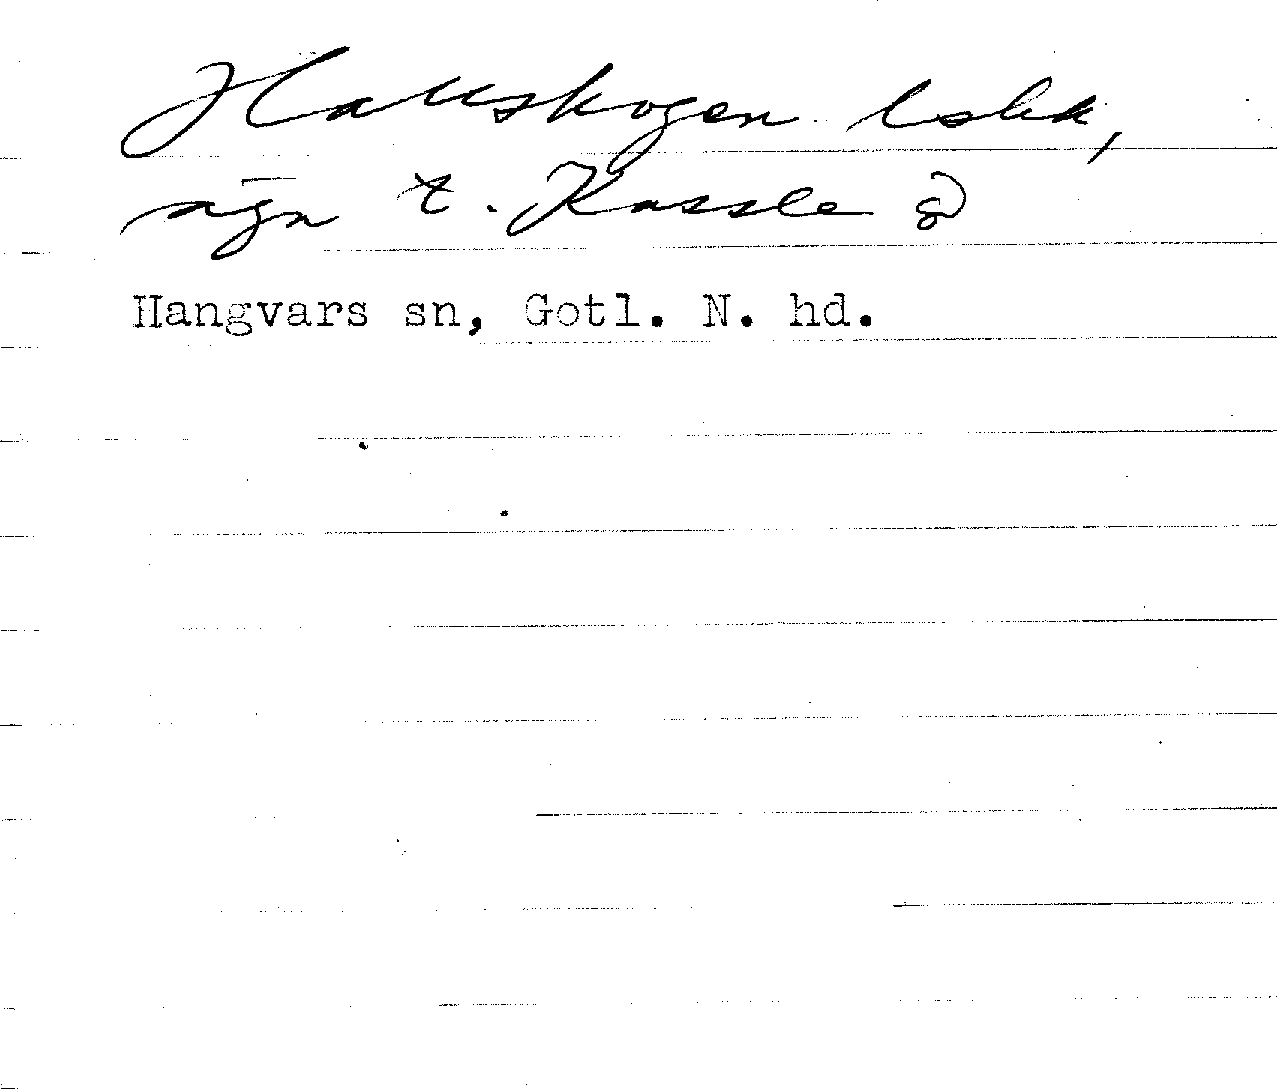 Hallskogen bskk,
ägn t. Kassle
Hangvars sn, Gotl. N. hd.